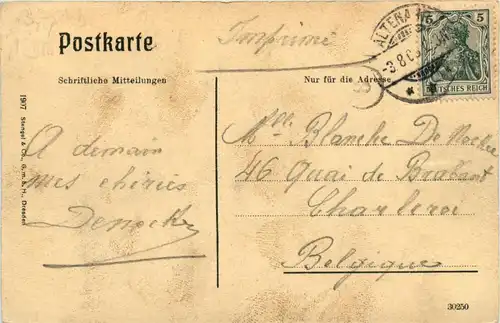 Postkarte
Imprimé
Schriftliche Mitteilungen
Nur für die Adresse
ALTENA
-3.8.0
5
5
DEUTSCHES REICH
1917 Stengel & Co., G. m. b. H., Dresden
A demain
mes chéries
Mlle Blanche De
46 Quai de Brabant
Charleroi
Belgique
30250